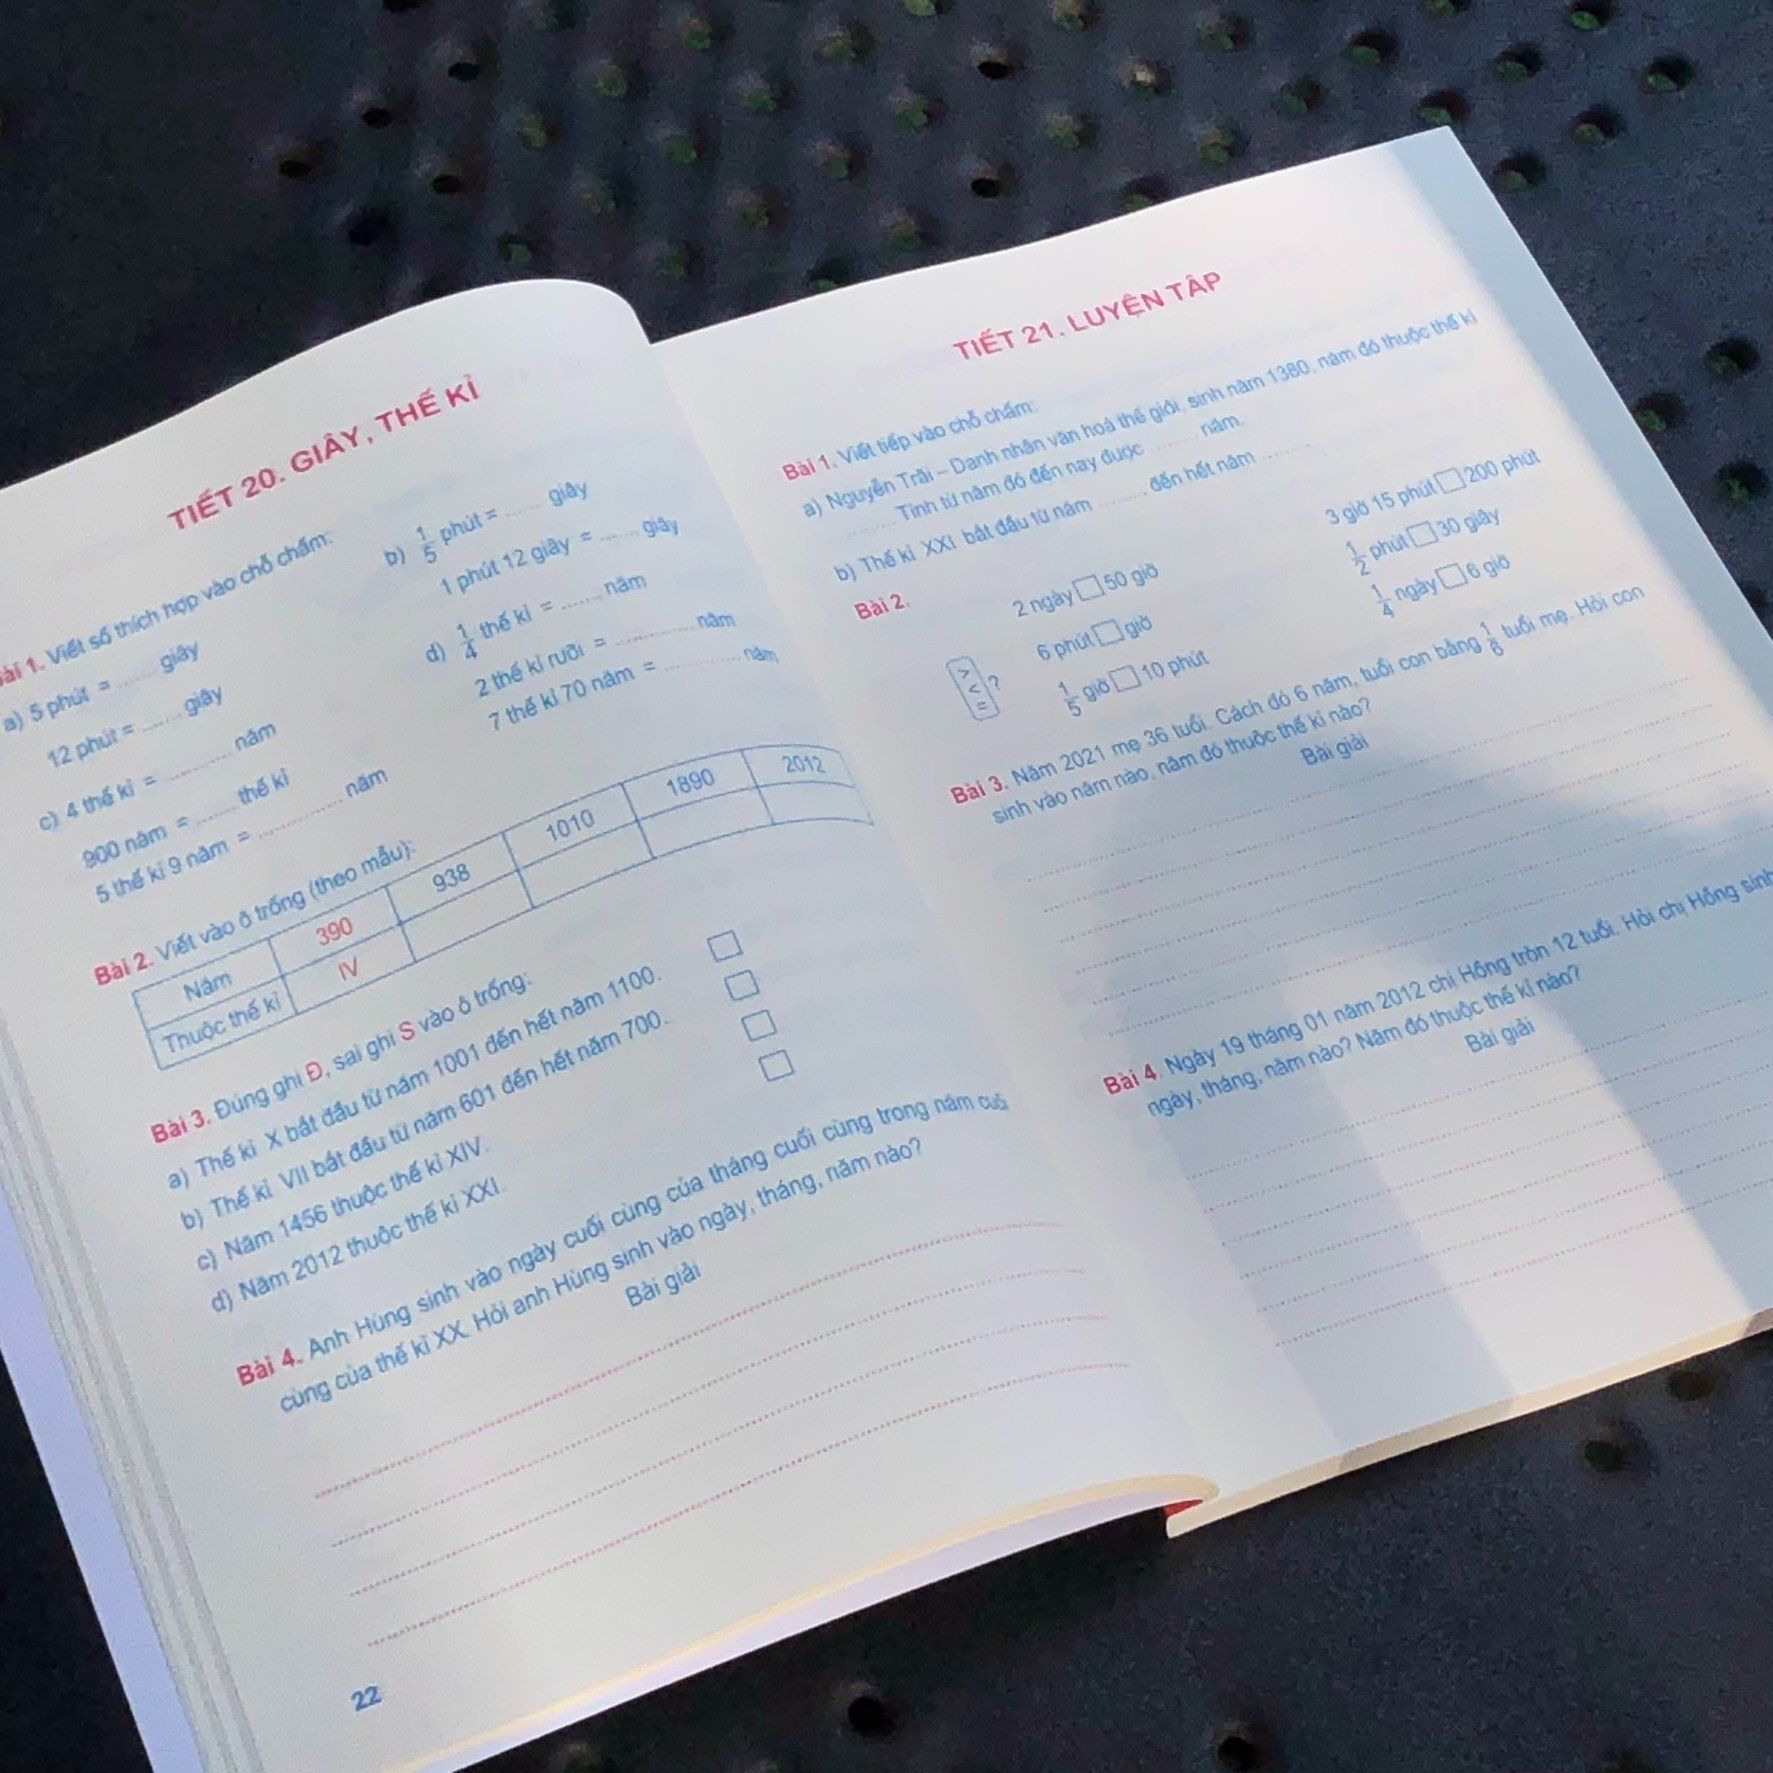 TIẾT 20. GIÂY, THẾ KỈ
Bài 1. Viết số thích hợp vào chỗ chấm:
a) 5 phút = ....... giây
12 phút = ....... giây
b) 1/5 phút = ....... giây
1 phút 12 giây = ....... giây
c) 4 thế kỉ = ............ năm
900 năm = ....... thế kỉ
5 thế kỉ 9 năm = ............... năm
d) 1/4 thế kỉ = ....... năm
2 thế kỉ rưỡi = .............. năm
7 thế kỉ 70 năm = .............. năm
Bài 2. Viết vào ô trống (theo mẫu):
Năm 390 938 1010 1890 2012
Thuộc thế kỉ IV
Bài 3. Đúng ghi Đ, sai ghi S vào ô trống:
a) Thế kỉ X bắt đầu từ năm 1001 đến hết năm 1100.
b) Thế kỉ VII bắt đầu từ năm 601 đến hết năm 700.
c) Năm 1456 thuộc thế kỉ XIV.
d) Năm 2012 thuộc thế kỉ XXI.
Bài 4. Anh Hùng sinh vào ngày cuối cùng của tháng cuối cùng trong năm cuối
cùng của thế kỉ XX. Hỏi anh Hùng sinh vào ngày, tháng, năm nào?
Bài giải
22
TIẾT 21. LUYỆN TẬP
Bài 1. Viết tiếp vào chỗ chấm:
a) Nguyễn Trãi – Danh nhân văn hoá thế giới, sinh năm 1380, năm đó thuộc thế kỉ
......... Tính từ năm đó đến nay được ......... năm.
b) Thế kỉ XXI bắt đầu từ năm ......... đến hết năm .............
Bài 2.
> < = ?
2 ngày □ 50 giờ
6 phút □ giờ
1/5 giờ □ 10 phút
3 giờ 15 phút □ 200 phút
1/2 phút □ 30 giây
1/4 ngày □ 6 giờ
Bài 3. Năm 2021 mẹ 36 tuổi. Cách đó 6 năm, tuổi con bằng tuổi mẹ. Hỏi con
sinh vào năm nào, năm đó thuộc thế kỉ nào?
Bài giải
Bài 4. Ngày 19 tháng 01 năm 2012 chị Hồng tròn 12 tuổi. Hỏi chị Hồng sinh
ngày, tháng, năm nào? Năm đó thuộc thế kỉ nào?
Bài giải